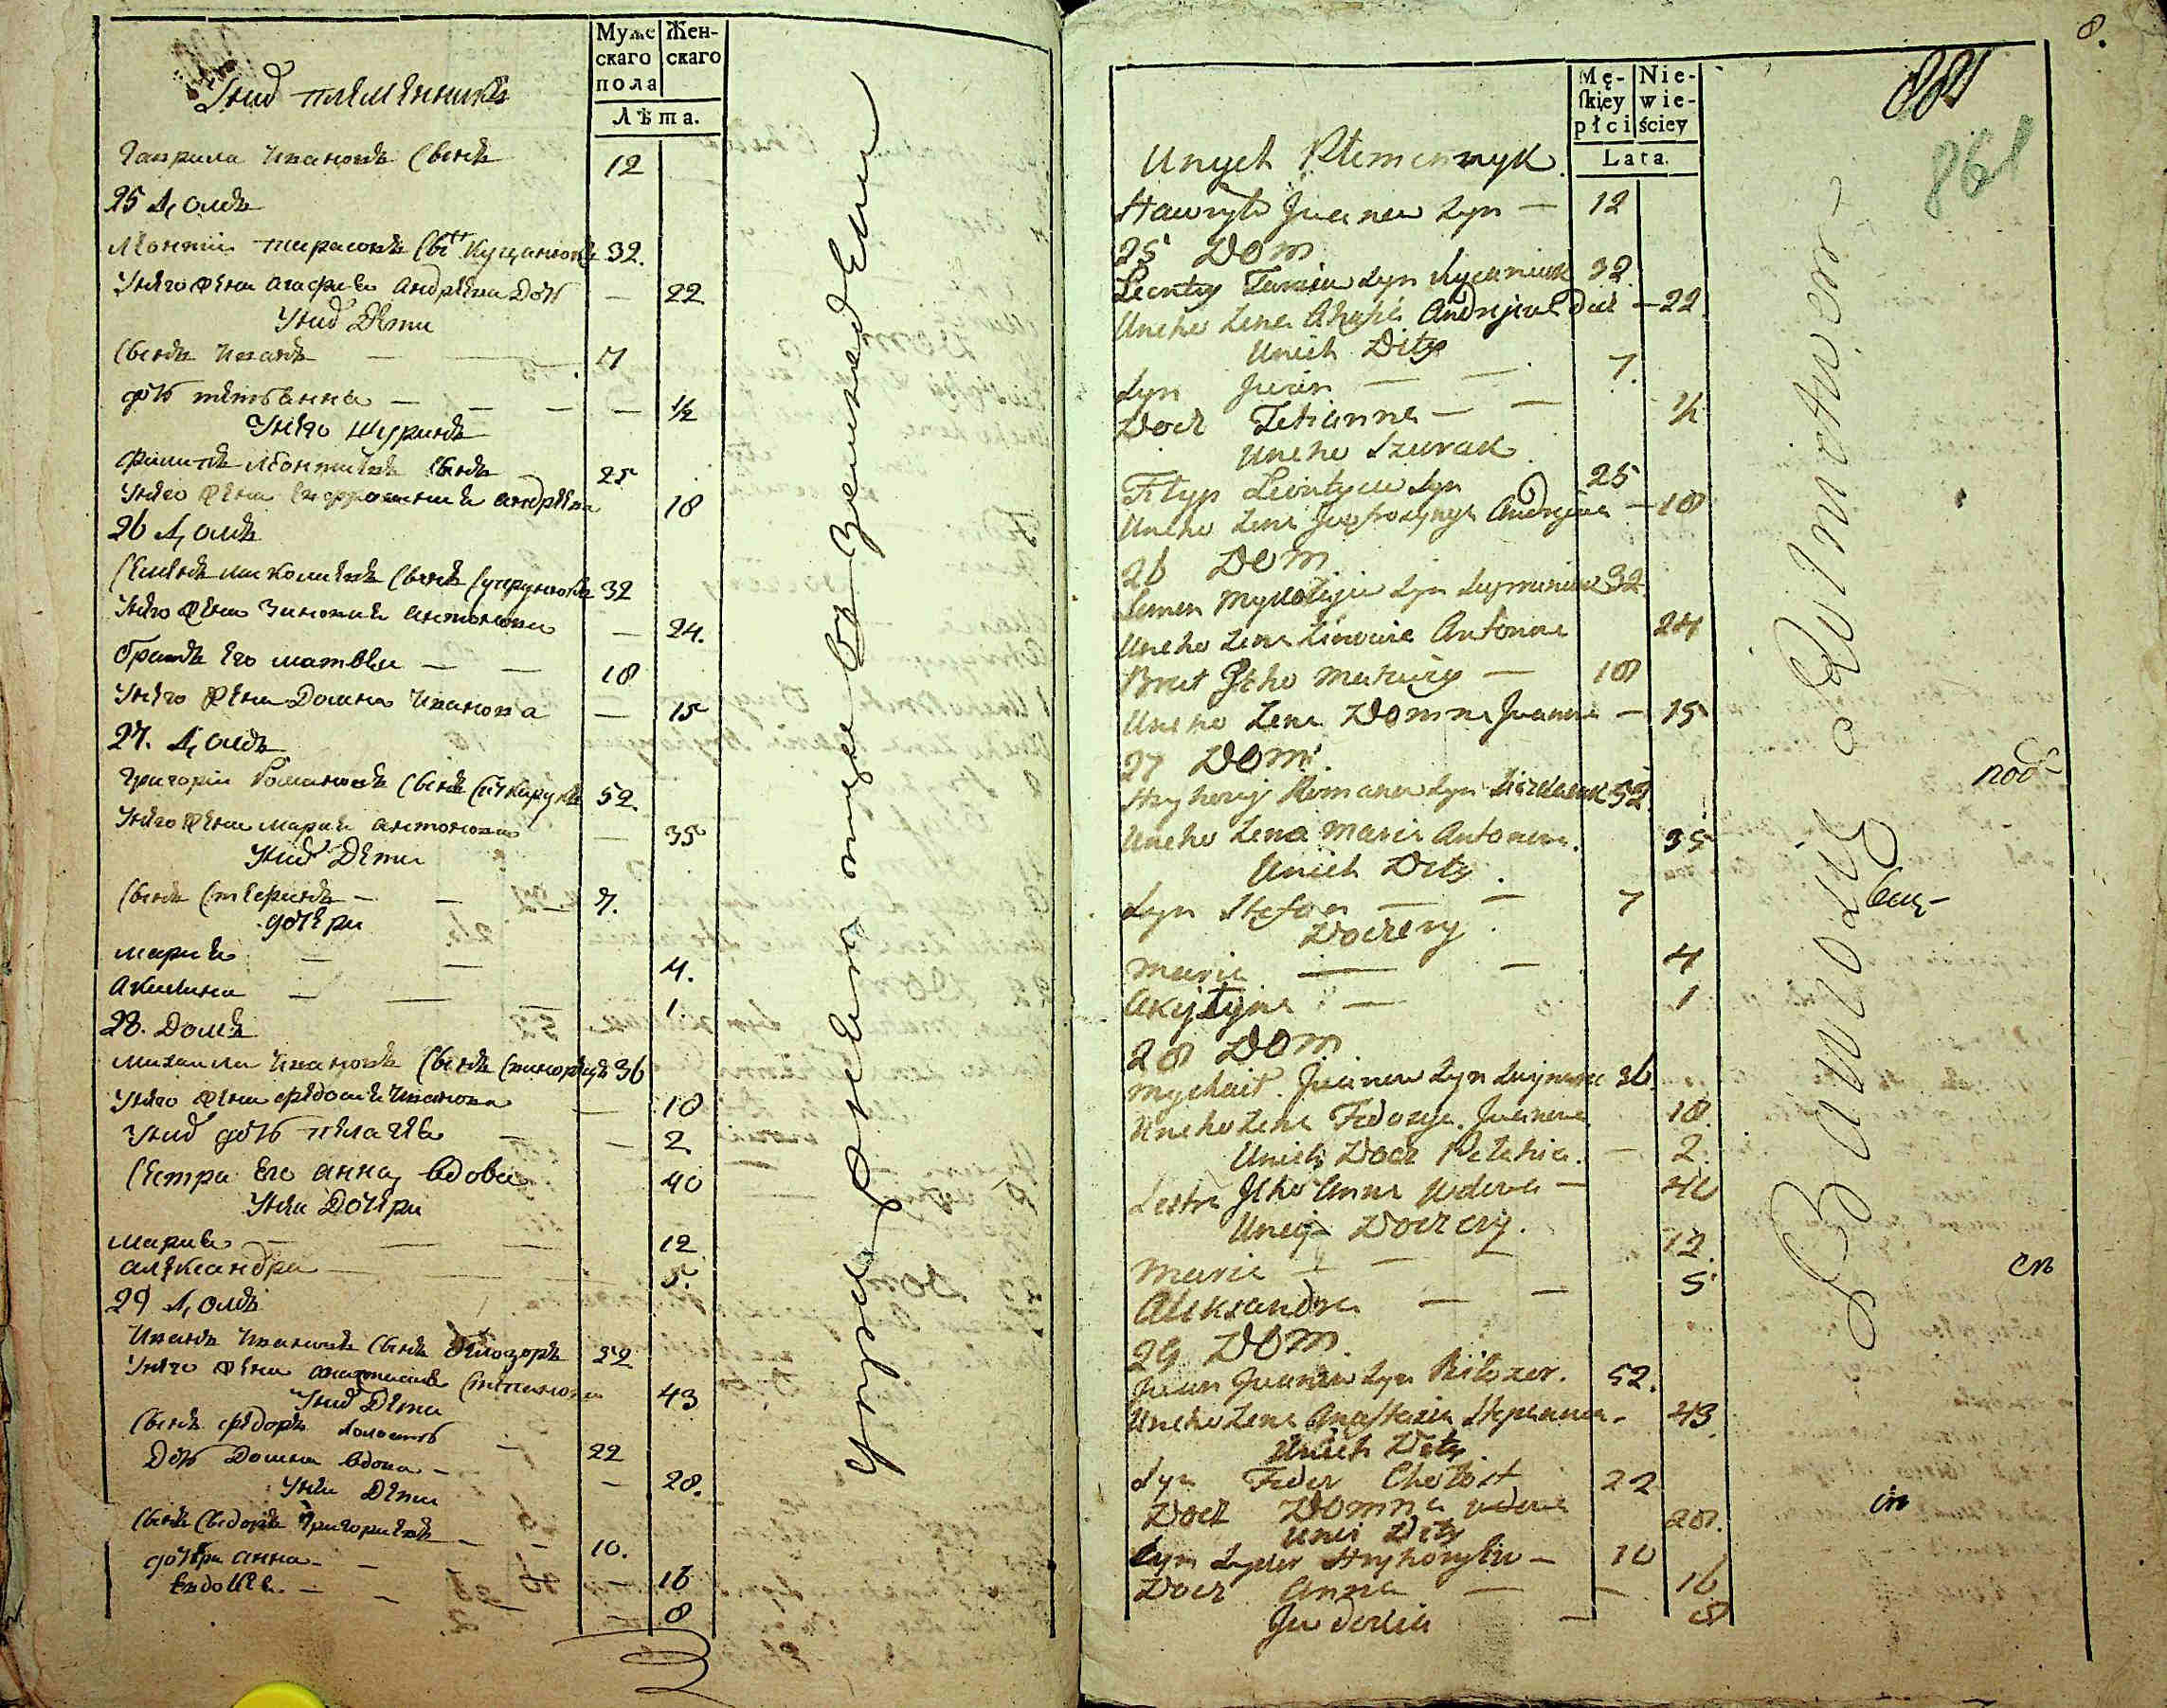 Муже
скаго
пола
Жен-
скаго
Лѣта.
Унид племенникъ
Гаврила Ивановъ Сынъ 12
25 Домъ
Леонтий Тарасовъ Сынъ Куцанюкъ 32.
Унѣго жена Агафия Андрѣева Дочь — 22
Унид Дѣти
Сынъ Иванъ — 7
дочь тетъанна — — — — 1/2
Унѣго шуринъ
Филипъ Леонтиевъ Сынъ 25
Унѣго жена Евфросиния Андрѣева 18
26 Домъ
Семенъ Миколаевъ Сынъ Супрунюкъ 32
Унѣго жена Зиновия Антонова — 24.
братъ Его матвѣи — — 18
Унѣго жена Домна Иванова — 15
27. Домъ
Григорий Романовъ Сынъ 52.
Унѣго жена Мария Антонова — 35
Унид Дѣти
Сынъ Стефанъ — — 7.
дочери
мария — — 4.
Акилина — — — 1.
28. Домъ
михаила Ивановъ Сынъ 36
Унѣго жена Федосия Иванова — 18
Унид дочь пелагея — — 2
Сестра Его анна вдова 40
Унеи Дочери
мария — — — 12
александра — — 5.
29 Домъ
Иванъ Ивановъ Сынъ Билозоръ 52
Унѣго жена Анастасия Степанова 43
Унид Дѣти
Сынъ Федоръ холостъ — 22
Дочь Домна вдова — — 28.
Унеи Дѣти
Сынъ Сидоръ Григориевъ — — 10.
дочери анна — — — 16
Евдокия — — — 8
8.
881
861
Mę-
skiey
płci
Nie-
wie-
ściey
Lata.
Unych Plemennyk.
Hawryło Juanow Syn — 12
25 Dom
Leonty Tarasow Syn Kucaniuk 32
Uneho Zena Ahafia Andrejewa Docz — 22
Unich Dity
Syn Juan — — 7.
Docz Tetianna — — 1/2
Uneho Szurak
Filyp Leontyew Syn 25
Uneho Zena Jewfrozynya Andrejewa — 18
26 Dom
Semen Mykołajew Syn 32
Uneho Zena Zinowia Antonowa 24
Brat Jeho Matwiy — 18
Uneho Zena Domna Juanowa — 15
27 Dom.
Hryhory Romanow Syn 52
Uneho Zena Maria Antonowa. 35
Unich Dity.
Syn Stefan — — 7
Doczery.
Maria — — 4
Akyłyna — 1
28 Dom
Mychaił Juanow Syn 36
Uneho Zena Fedosya Juanowa 18
Unich Docz Pelahia. — 2.
Sestra Jeho Anna wdowa — 40
Uneij Doczery.
Maria — — — 12.
Aleksandra — — 5
29 Dom.
Juan Juanow Syn Biłozor. 52.
Uneho Zena Anastazia Stepanowa — 43
Unich Dity.
Syn Fedor Chołost 22
Docz Domna wdowa 28.
Unei Dity
Syn Sydor Hryhoryiw — 10
Docz Anna — — 16
Jewdokia — 8
под-
вищ-